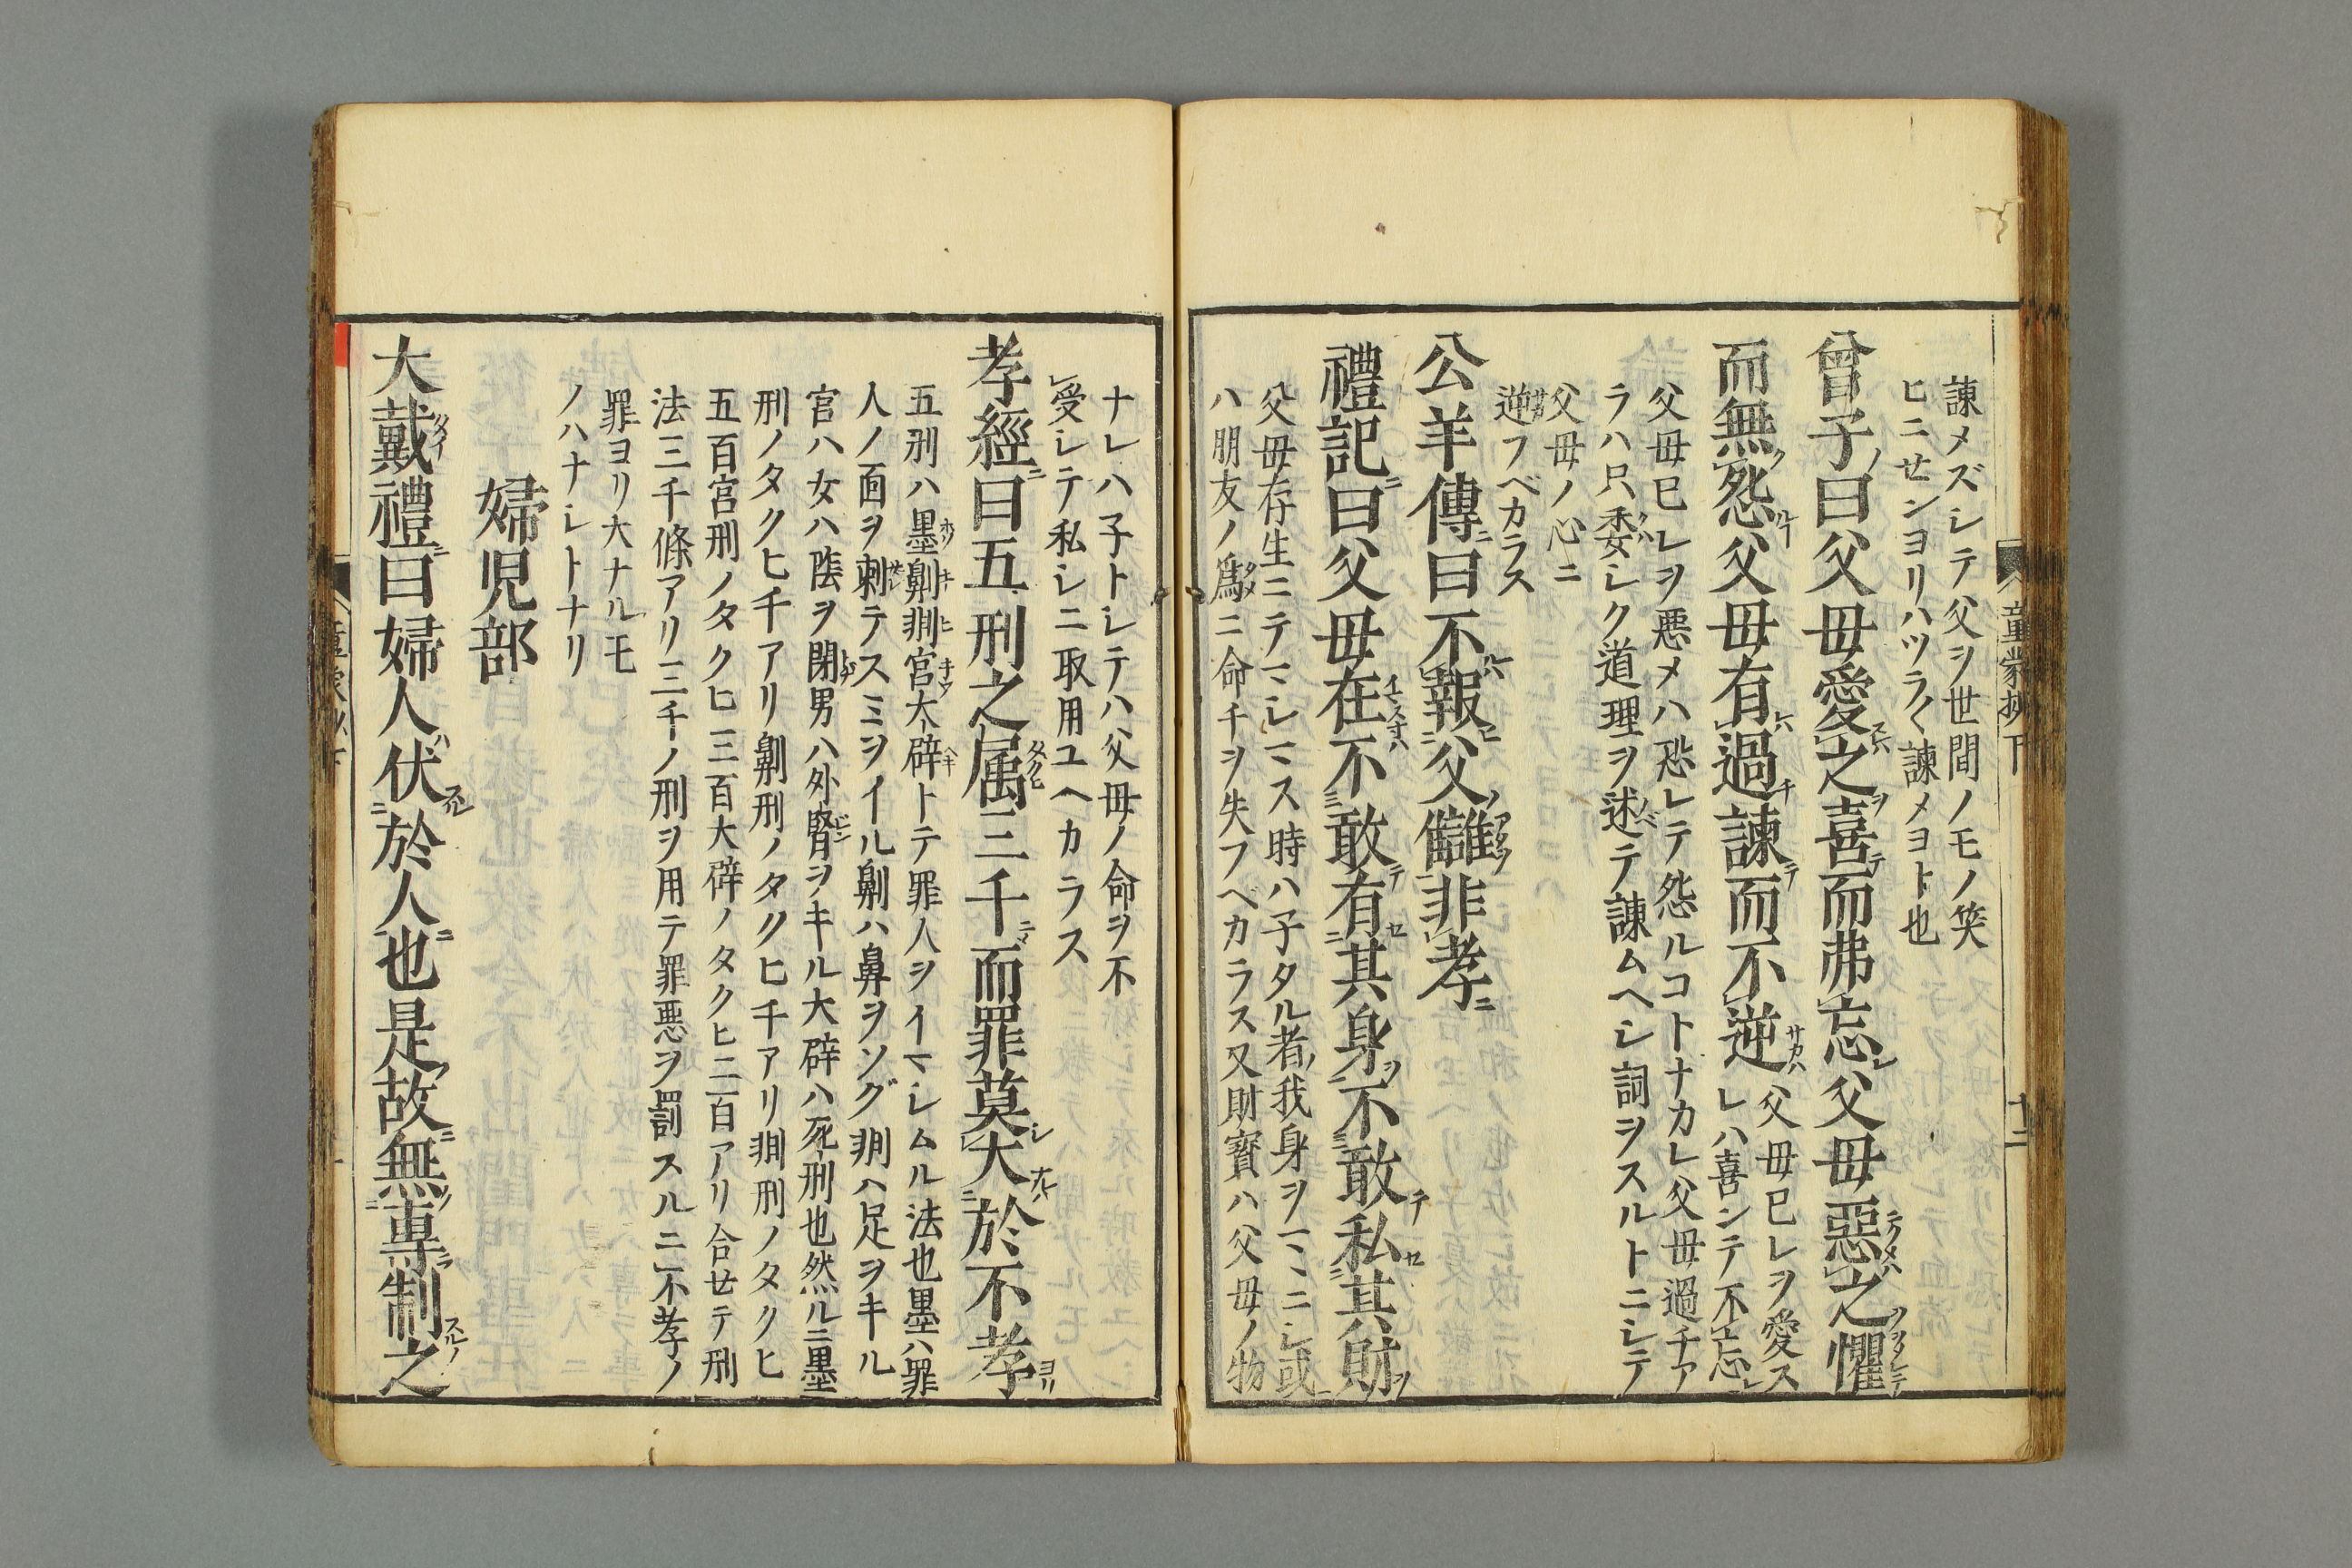 諫メズシテ父ヲ世間ノモノ笑
ヒニせンヨリハツラ〱諫メヨト也
曾子曰父母愛之喜而弗忘父母惡之懼
而無怨父母有過諫而不逆
父母已レヲ愛ス
レハ喜ンテ不忘
父母已レヲ悪メハ恐レテ怨ルコトナカレ父母過チア
ラハ只委シク道理ヲ述テ諫ムヘシ詞ヲスルトニシテ
父母ノ心ニ
逆フベカラス
公羊傳曰不報父讎非孝
禮記曰父母在不敢有其身不敢私其財
父母存生ニテマシマス時ハ子タル者我身ヲマヽニシ或
ハ朋友ノ爲ニ命チヲ失フベカラス又財寳ハ父母ノ物
童蒙抄下
十二
ナレハ子トシテハ父母ノ命ヲ不
受シテ私シニ取用ユヘカラス
孝經曰五刑之属三千而罪莫大於不孝
五刑ハ墨劓剕宮大辟トテ罪人ヲイマシムル法也墨ハ罪
人ノ面ヲ刺テスミヲイル劓ハ鼻ヲソグ剕ハ足ヲキル
宮ハ女ハ陰ヲ閉男ハ外腎ヲキル大辟ハ死刑也然ルニ墨
刑ノタクヒ千アリ劓刑ノタクヒ千アリ剕刑ノタクヒ
五百宮刑ノタクヒ三百大辟ノタクヒ二百アリ合せテ刑
法三千條アリ三千ノ刑ヲ用テ罪悪ヲ罰スルニ不孝ノ
罪ヨリ大ナルモ
ノハナシトナリ
婦児部
大戴禮曰婦人伏於人也是故無専制之